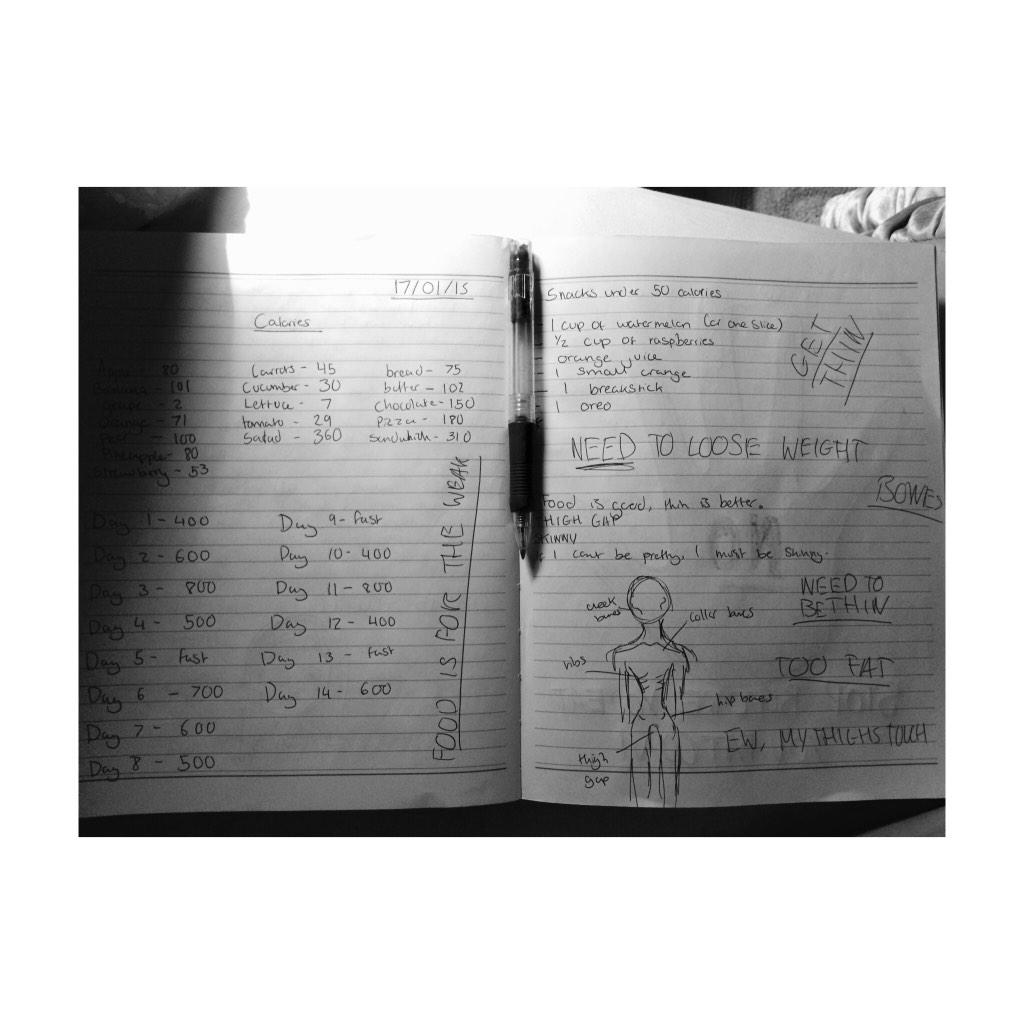 17/01/15
Calories
Apple - 80
Banana - 101
grape - 2
Orange - 71
Pear - 100
Pineapple - 80
Strawberry - 53
Carrots - 45
Cucumber - 30
Lettuce - 7
tomato - 29
Salad - 360
bread - 75
butter - 102
chocolate - 150
Pizza - 180
Sandwhich - 310
Day 1 - 400
Day 2 - 600
Day 3 - 800
Day 4 - 500
Day 5 - fast
Day 6 - 700
Day 7 - 600
Day 8 - 500
Day 9 - fast
Day 10 - 400
Day 11 - 800
Day 12 - 400
Day 13 - fast
Day 14 - 600
FOOD IS FOR THE WEAK
Snacks under 50 calories
1 cup of watermelon (or one slice)
½ cup of raspberries
orange juice
1 small orange
1 breadstick
1 oreo
GET
THIN
NEED TO LOOSE WEIGHT
BONES
Food is good, thin is better.
THIGH GAP
SKINNY
I cant be pretty, I must be skinny.
NEED TO
BE THIN
cheek
bones
collar bones
ribs
TOO FAT
hip bones
EW, MY THIGHS TOUCH
thigh
gap